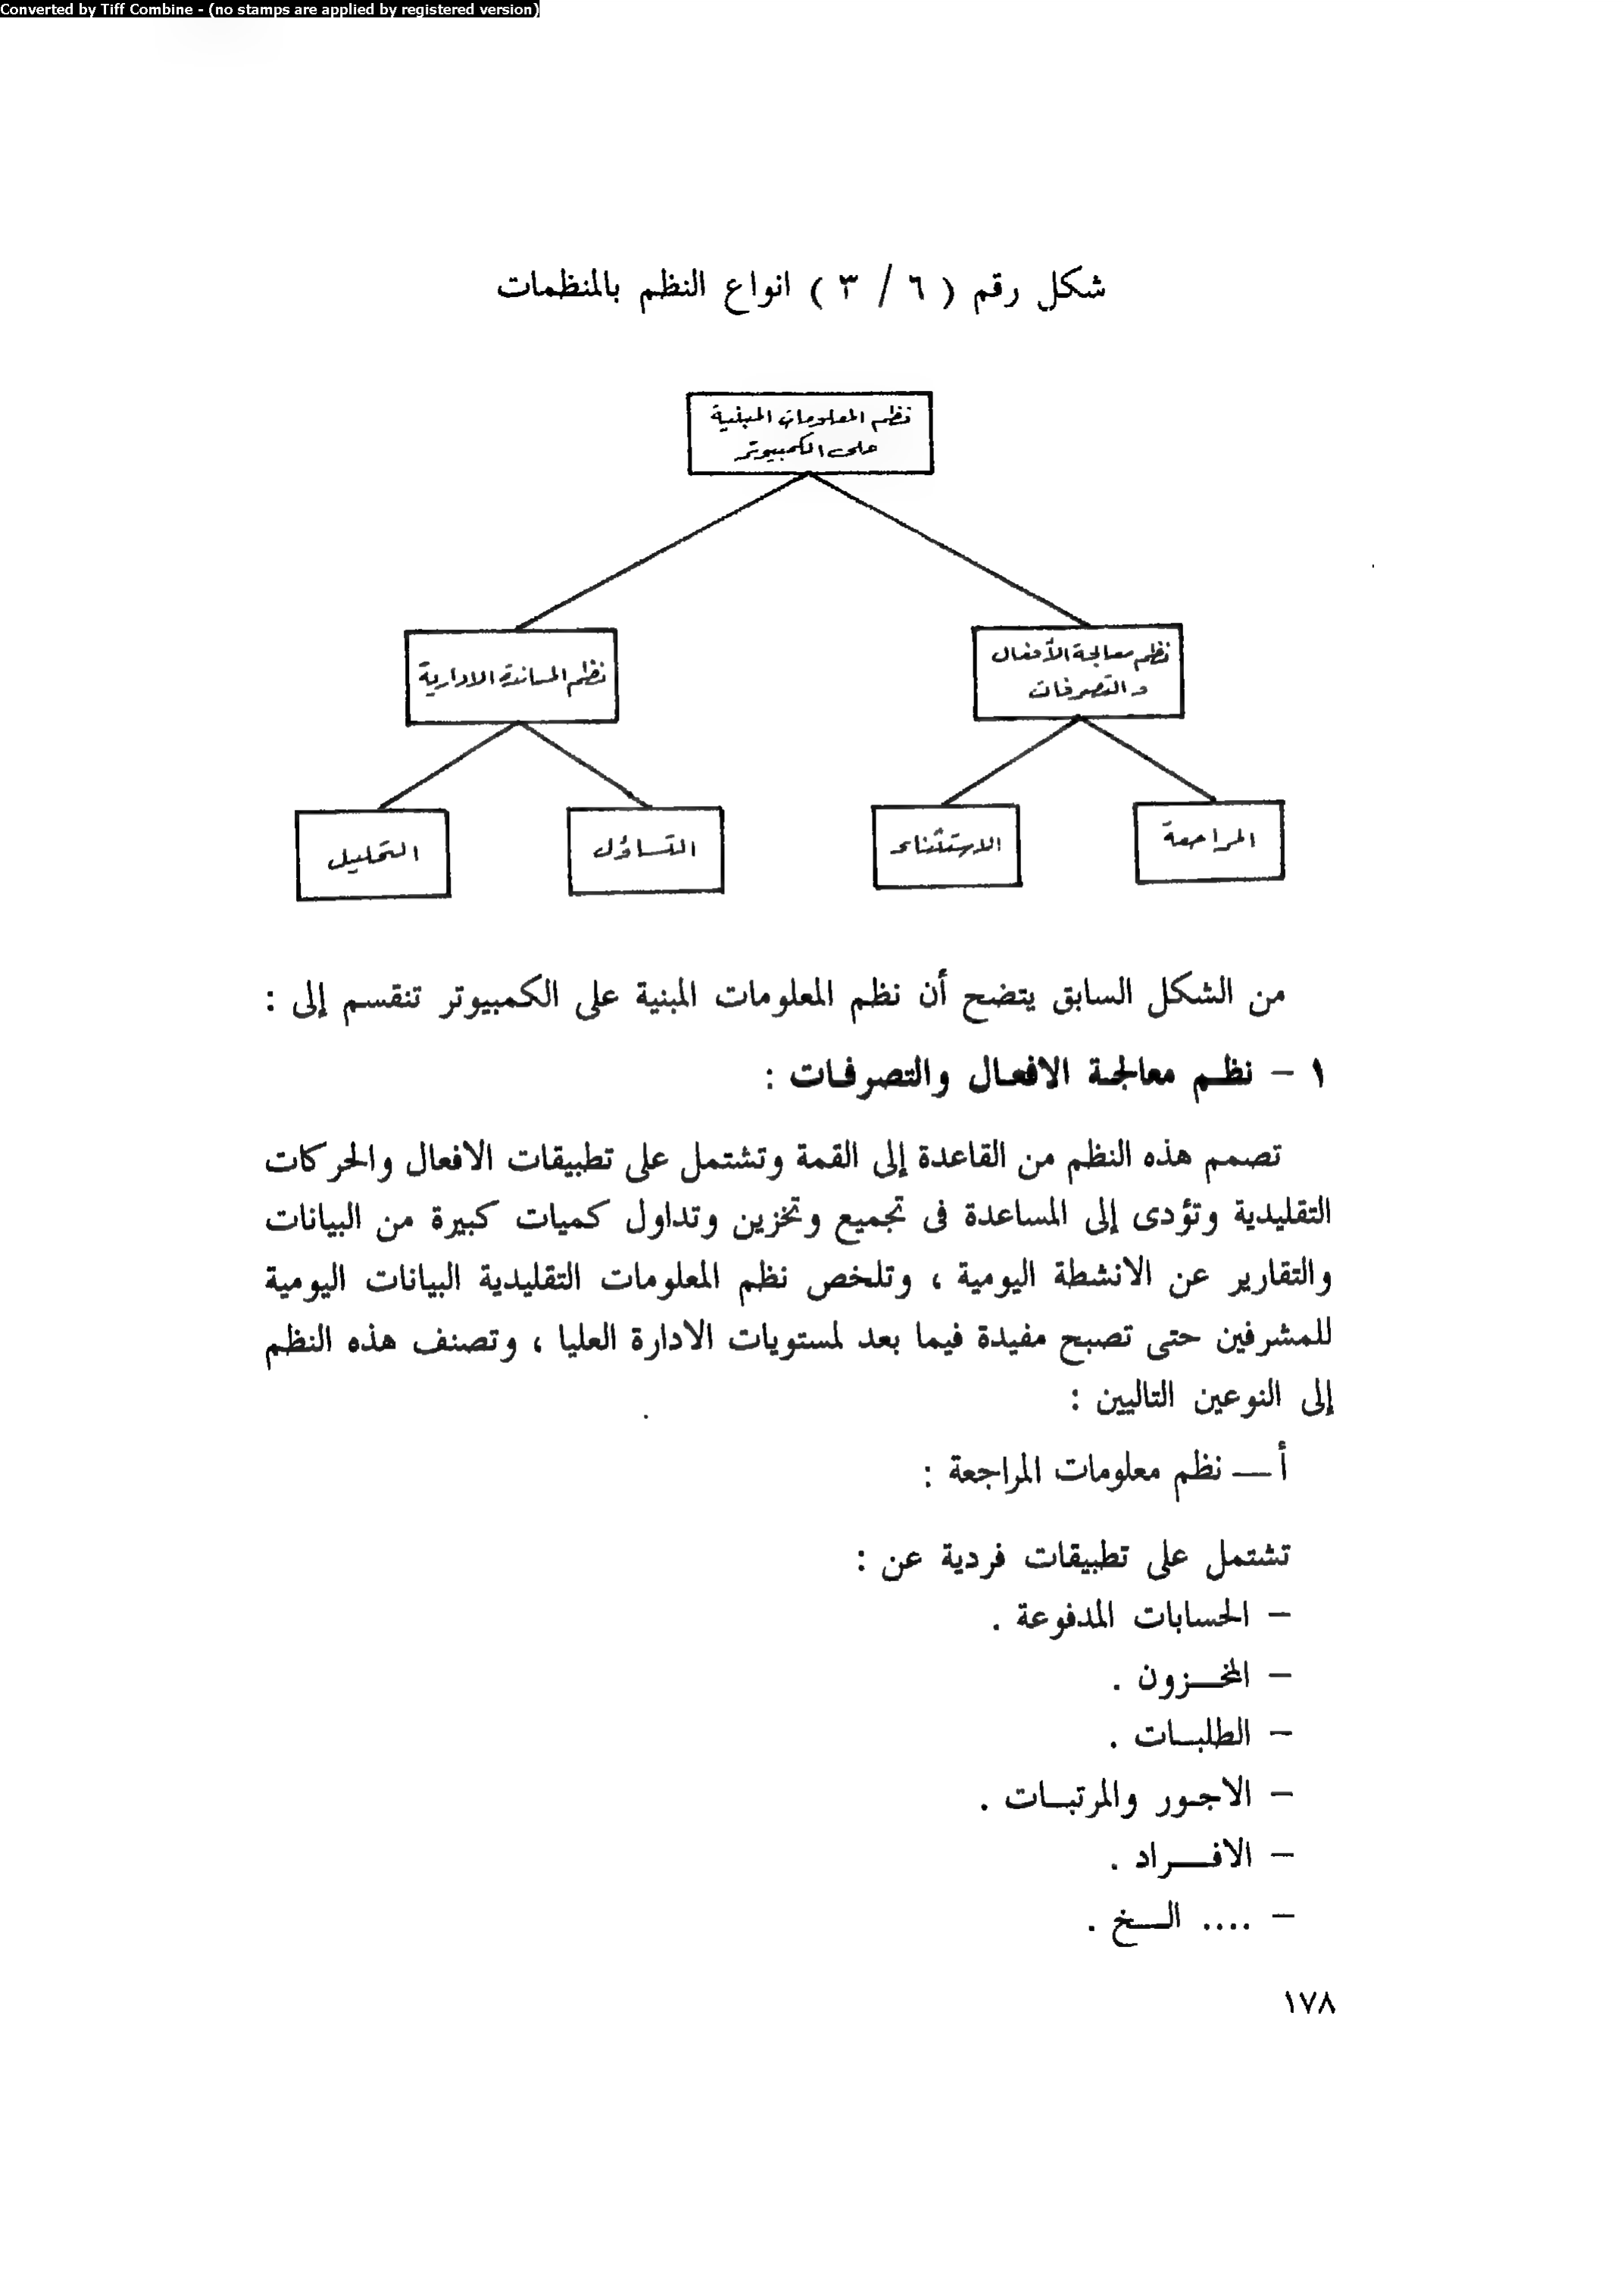 Converted by Tiff Combine - (no stamps are applied by registered version)
شكل رقم ( ٦ / ٣ ) انواع النظم بالمنظمات
نظم المعلومات المبنية
على الكمبيوتر
نظم معالجة الأفعال
والتصرفات
نظم المساندة الادارية
المراجعة
الاستثناء
التساؤل
التحليل
من الشكل السابق يتضح أن نظم المعلومات المبنية على الكمبيوتر تنقسم إلى :
١ - نظـم معالجـة الافعـال والتصرفـات :
تصمم هذه النظم من القاعدة إلى القمة وتشتمل على تطبيقات الافعال والحركات
التقليدية وتؤدى إلى المساعدة فى تجميع وتخزين وتداول كميات كبيرة من البيانات
والتقارير عن الانشطة اليومية ، وتلخص نظم المعلومات التقليدية البيانات اليومية
للمشرفين حتى تصبح مفيدة فيما بعد لمستويات الادارة العليا ، وتصنف هذه النظم
إلى النوعين التاليين :
أ — نظم معلومات المراجعة :
تشتمل على تطبيقات فردية عن :
- الحسابات المدفوعة .
- المخـــزون .
- الطلبـــات .
- الاجـور والمرتبـــات .
- الافـــراد .
- .... الـــخ .
١٧٨